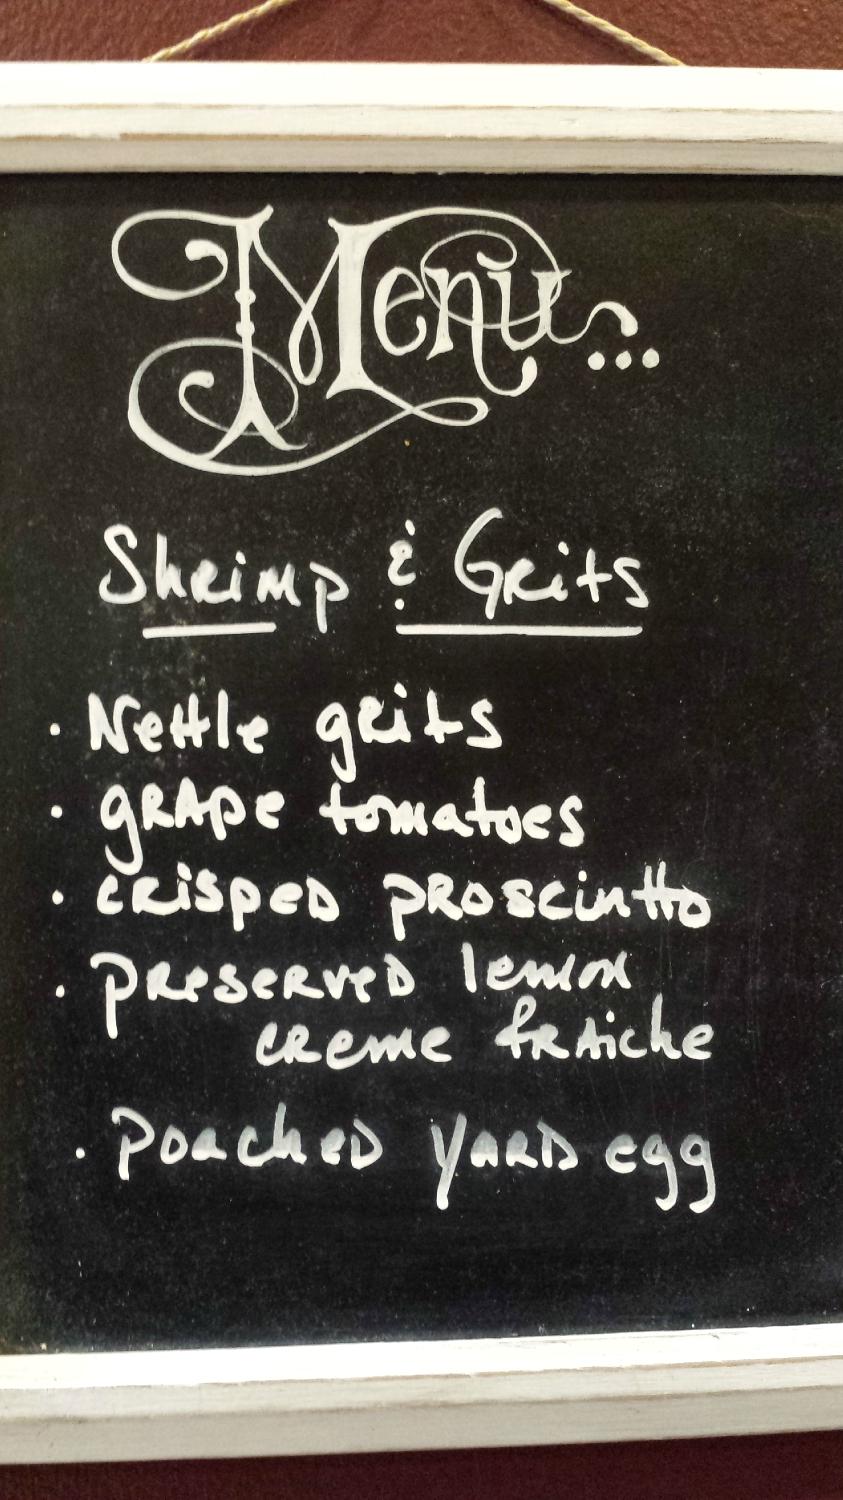 Menu...
Shrimp & Grits
· Nettle grits
· grape tomatoes
· crisped prosciutto
· preserved lemon
creme fraiche
· poached yard egg